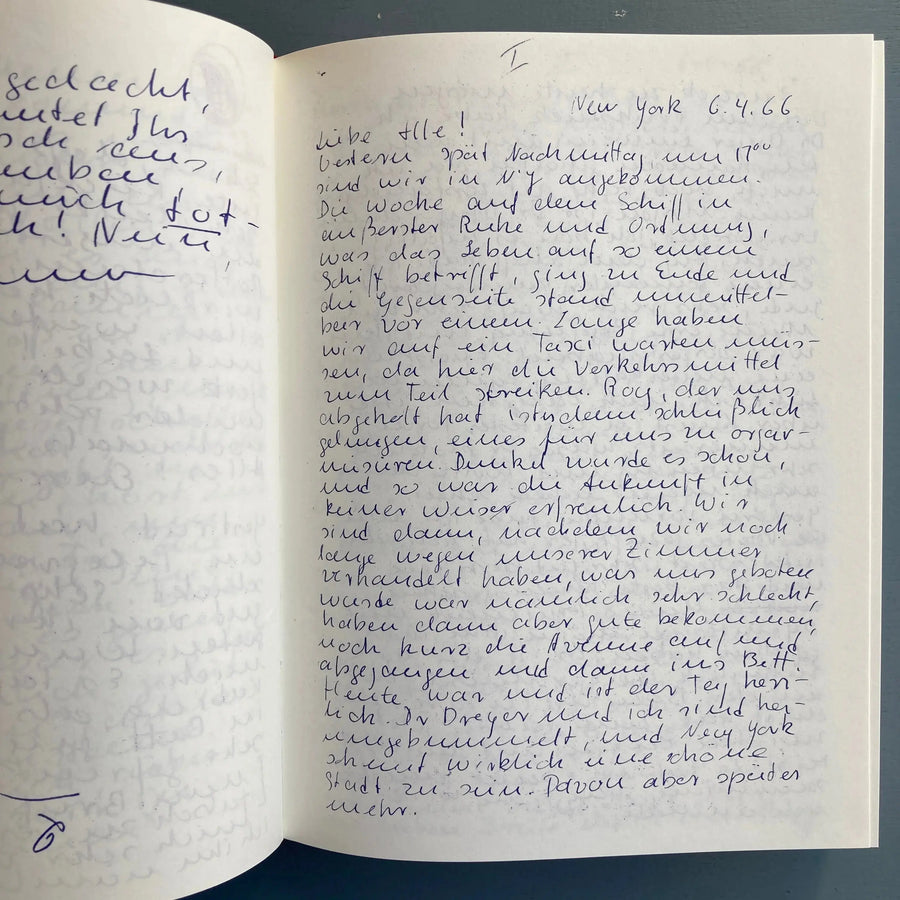 gedacht,
Ihr
aus,
mich tot-
! Nein,
I
New York 6.4.66
Liebe Alle!
Gestern spät Nachmittag um 17⁰⁰
sind wir in NY angekommen.
Die Woche auf dem Schiff in
äußerster Ruhe und Ordnung,
was das Leben auf so einem
Schiff betrifft, ging zu Ende und
die Gegenseite stand unmittel-
bar vor einem. Lange haben
wir auf ein Taxi warten müs-
sen, da hier die Verkehrsmittel
zum Teil streiken. Roy, der uns
abgeholt hat ist schließlich
gelungen, eines für uns zu orga-
nisieren. Dunkel wurde es schon,
und so war die Ankunft in
keiner Weise erfreulich. Wir
sind dann, nachdem wir noch
lange wegen unserer Zimmer
verhandelt haben, was uns geboten
wurde war nämlich sehr schlecht,
haben dann aber gute bekommen,
noch kurz die Avenue auf und
abgegangen und dann ins Bett.
Heute war und ist der Tag herr-
lich. Dr Dreyer und ich sind her-
umgebummelt, und New York
scheint wirklich eine schöne
Stadt zu sein. Davon aber später
mehr.